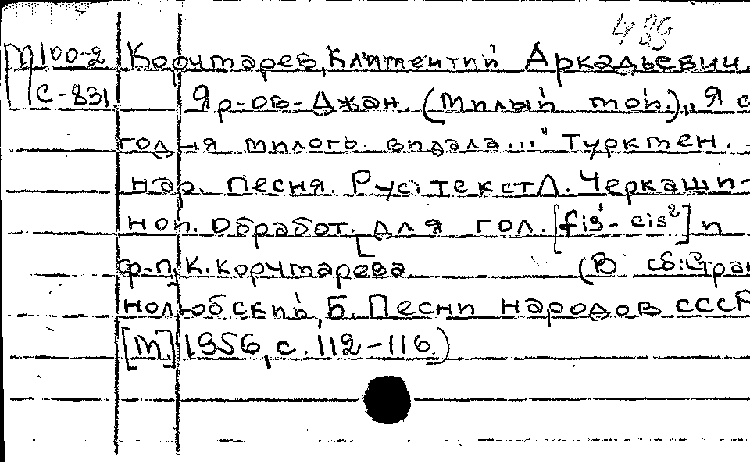 489
М 100-2 Корчмарев, Климентий Аркадьевич.
С-831 Яр-ов-Джан. (Милый мой.) „Я с
годня милого видала..." Туркмен.
нар. песня. Рус. текст Л. Черкаши-
ной. Обработ. для гол. [fis¹-cis²] и
ф-п. К. Корчмарева. (В сб: Стран
нолюбский, Б. Песни народов СССР
[М.] 1956, с. 112-116.)